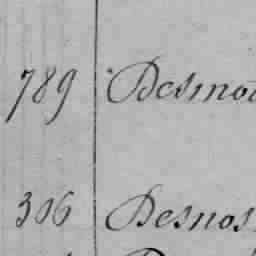 789 Desmot
306 Desnos